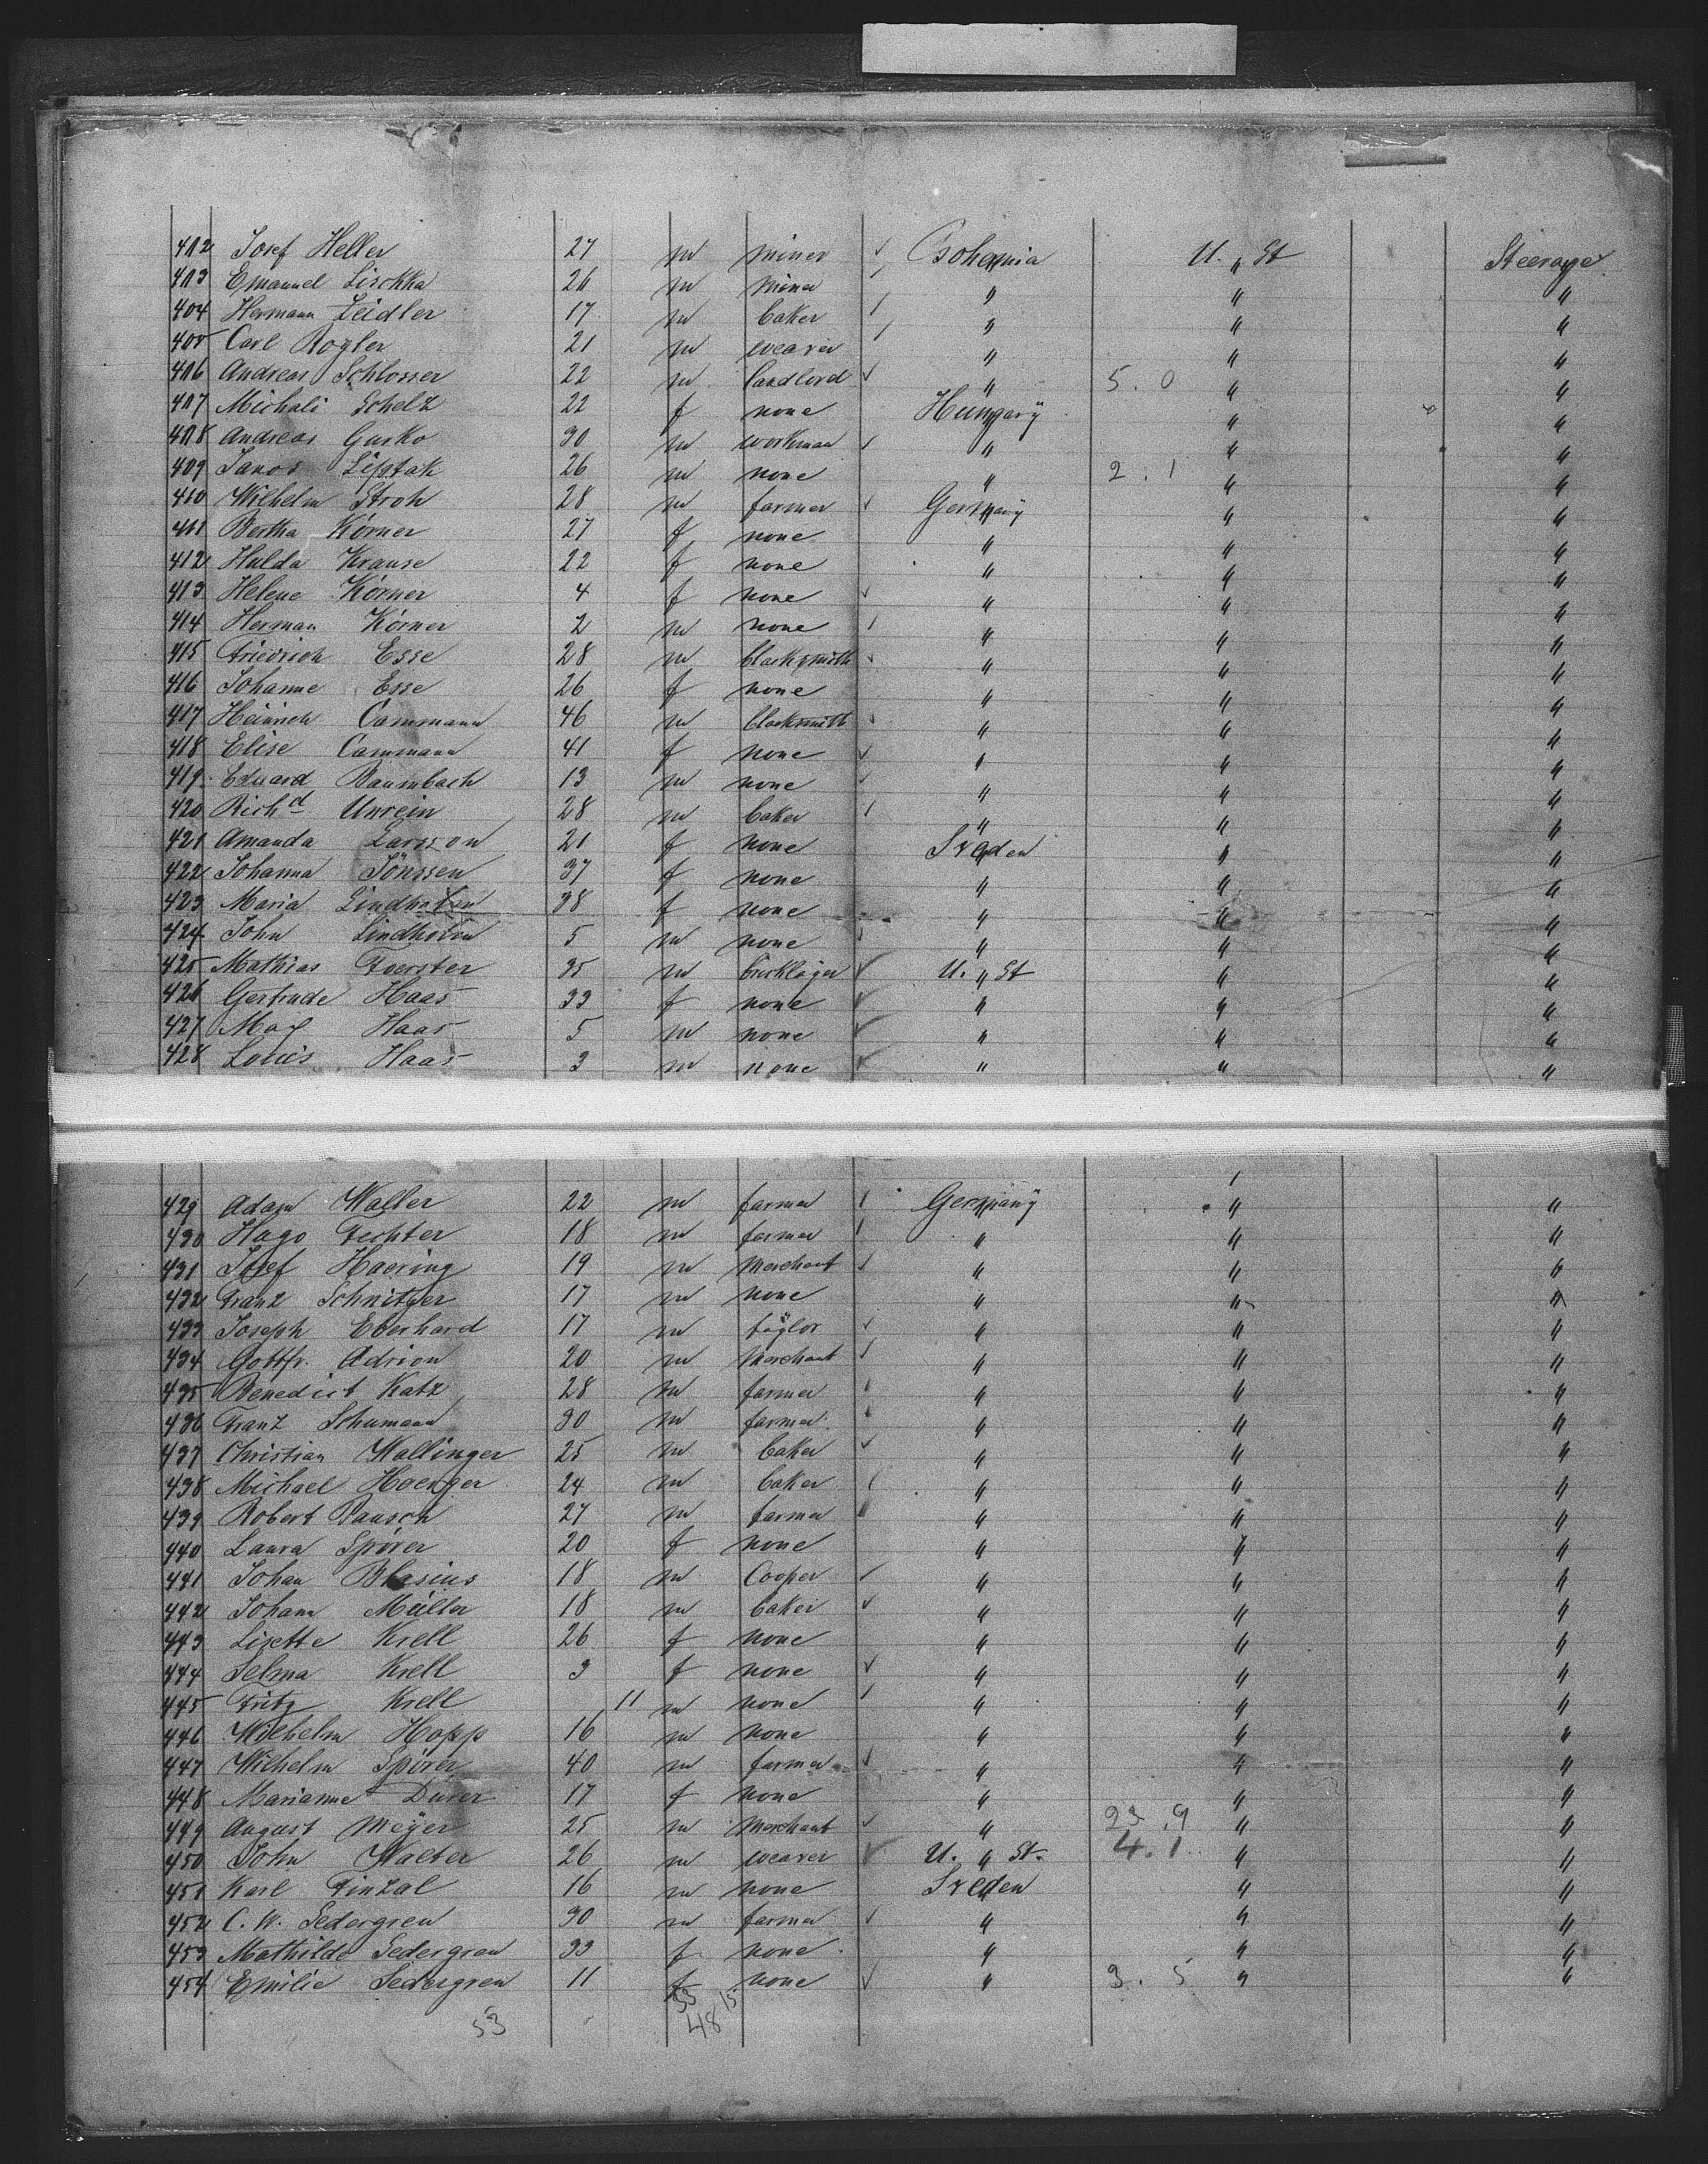 402 Josef Heller 27 m miner ✓ Bohemia U. " St Steerage
403 Emanuel Lischka 26 m miner " " "
404 Hermann Zeidler 17 m baker " " "
405 Carl Rogler 21 m weaver " " "
406 Andreas Schlosser 22 m landlord ✓ " 5. 0 " "
407 Michali Schelz 22 f none Hungary " "
408 Andreas Gusko 30 m workman " " "
409 Janos Liptak 26 m none " 2. 1 " "
410 Wilhelm Stroh 28 m farmer ✓ Germany " "
411 Bertha Körner 27 f none " " "
412 Hulda Krause 22 f none " " "
413 Helene Körner 4 f none ✓ " " "
414 Herman Körner 2 m none " " "
415 Friedrich Esse 28 m blacksmith ✓ " " "
416 Johanne Esse 26 f none " " "
417 Heinrich Cammann 46 m blacksmith ✓ " " "
418 Elise Cammann 41 f none ✓ " " "
419 Eduard Baumbach 13 m none ✓ " " "
420 Richd Unrein 28 m baker " " "
421 Amanda Larsson 21 f none Sveden " "
422 Johanna Jönssen 37 f none " " "
423 Maria Lindholm 38 f none " " "
424 John Lindholm 5 m none " " "
425 Mathias Foerster 35 m bricklayer ✓ U. " St " "
426 Gertrude Haas 33 f none ✓ " " "
427 Max Haas 5 m none ✓ " " "
428 Louis Haas 3 m none ✓ " " "
429 Adam Waller 22 m farmer Germany " "
430 Hugo Fechter 18 m farmer " " "
431 Josef Haering 19 m Merchant ✓ " " "
432 Franz Schnitzer 17 m none " " "
433 Joseph Eberhard 17 m taylor ✓ " " "
434 Gottfr. Adrion 20 m Merchant ✓ " " "
435 Benedict Katz 28 m farmer " " "
436 Franz Schumann 30 m farmer " " "
437 Christian Wallinger 25 m baker ✓ " " "
438 Michael Hoenger 24 m baker " " "
439 Robert Bausch 27 m farmer " " "
440 Laura Spörer 20 f none " " "
441 Johan Blasius 18 m Cooper ✓ " " "
442 Johann Müller 18 m baker ✓ " " "
443 Lisette Krell 26 f none " " "
444 Selma Krell 3 f none ✓ " " "
445 Fritz Krell 11 m none " " "
446 Wilhelm Hopp 16 m none " " "
447 Wilhelm Spörer 40 m farmer ✓ " " "
448 Marianne Durer 17 f none " " "
449 August Meyer 25 m Merchant ✓ " 23. 9 " "
450 John Walter 26 m weaver ✓ U. " St. 4. 1 " "
451 Karl Finzal 16 m none Sveden " "
452 C. W. Sedergren 30 m farmer ✓ " " "
453 Mathilde Sedergren 33 f none " " "
454 Emilie Sedergren 11 f none ✓ " 3. 5 " "
53 33 15
48